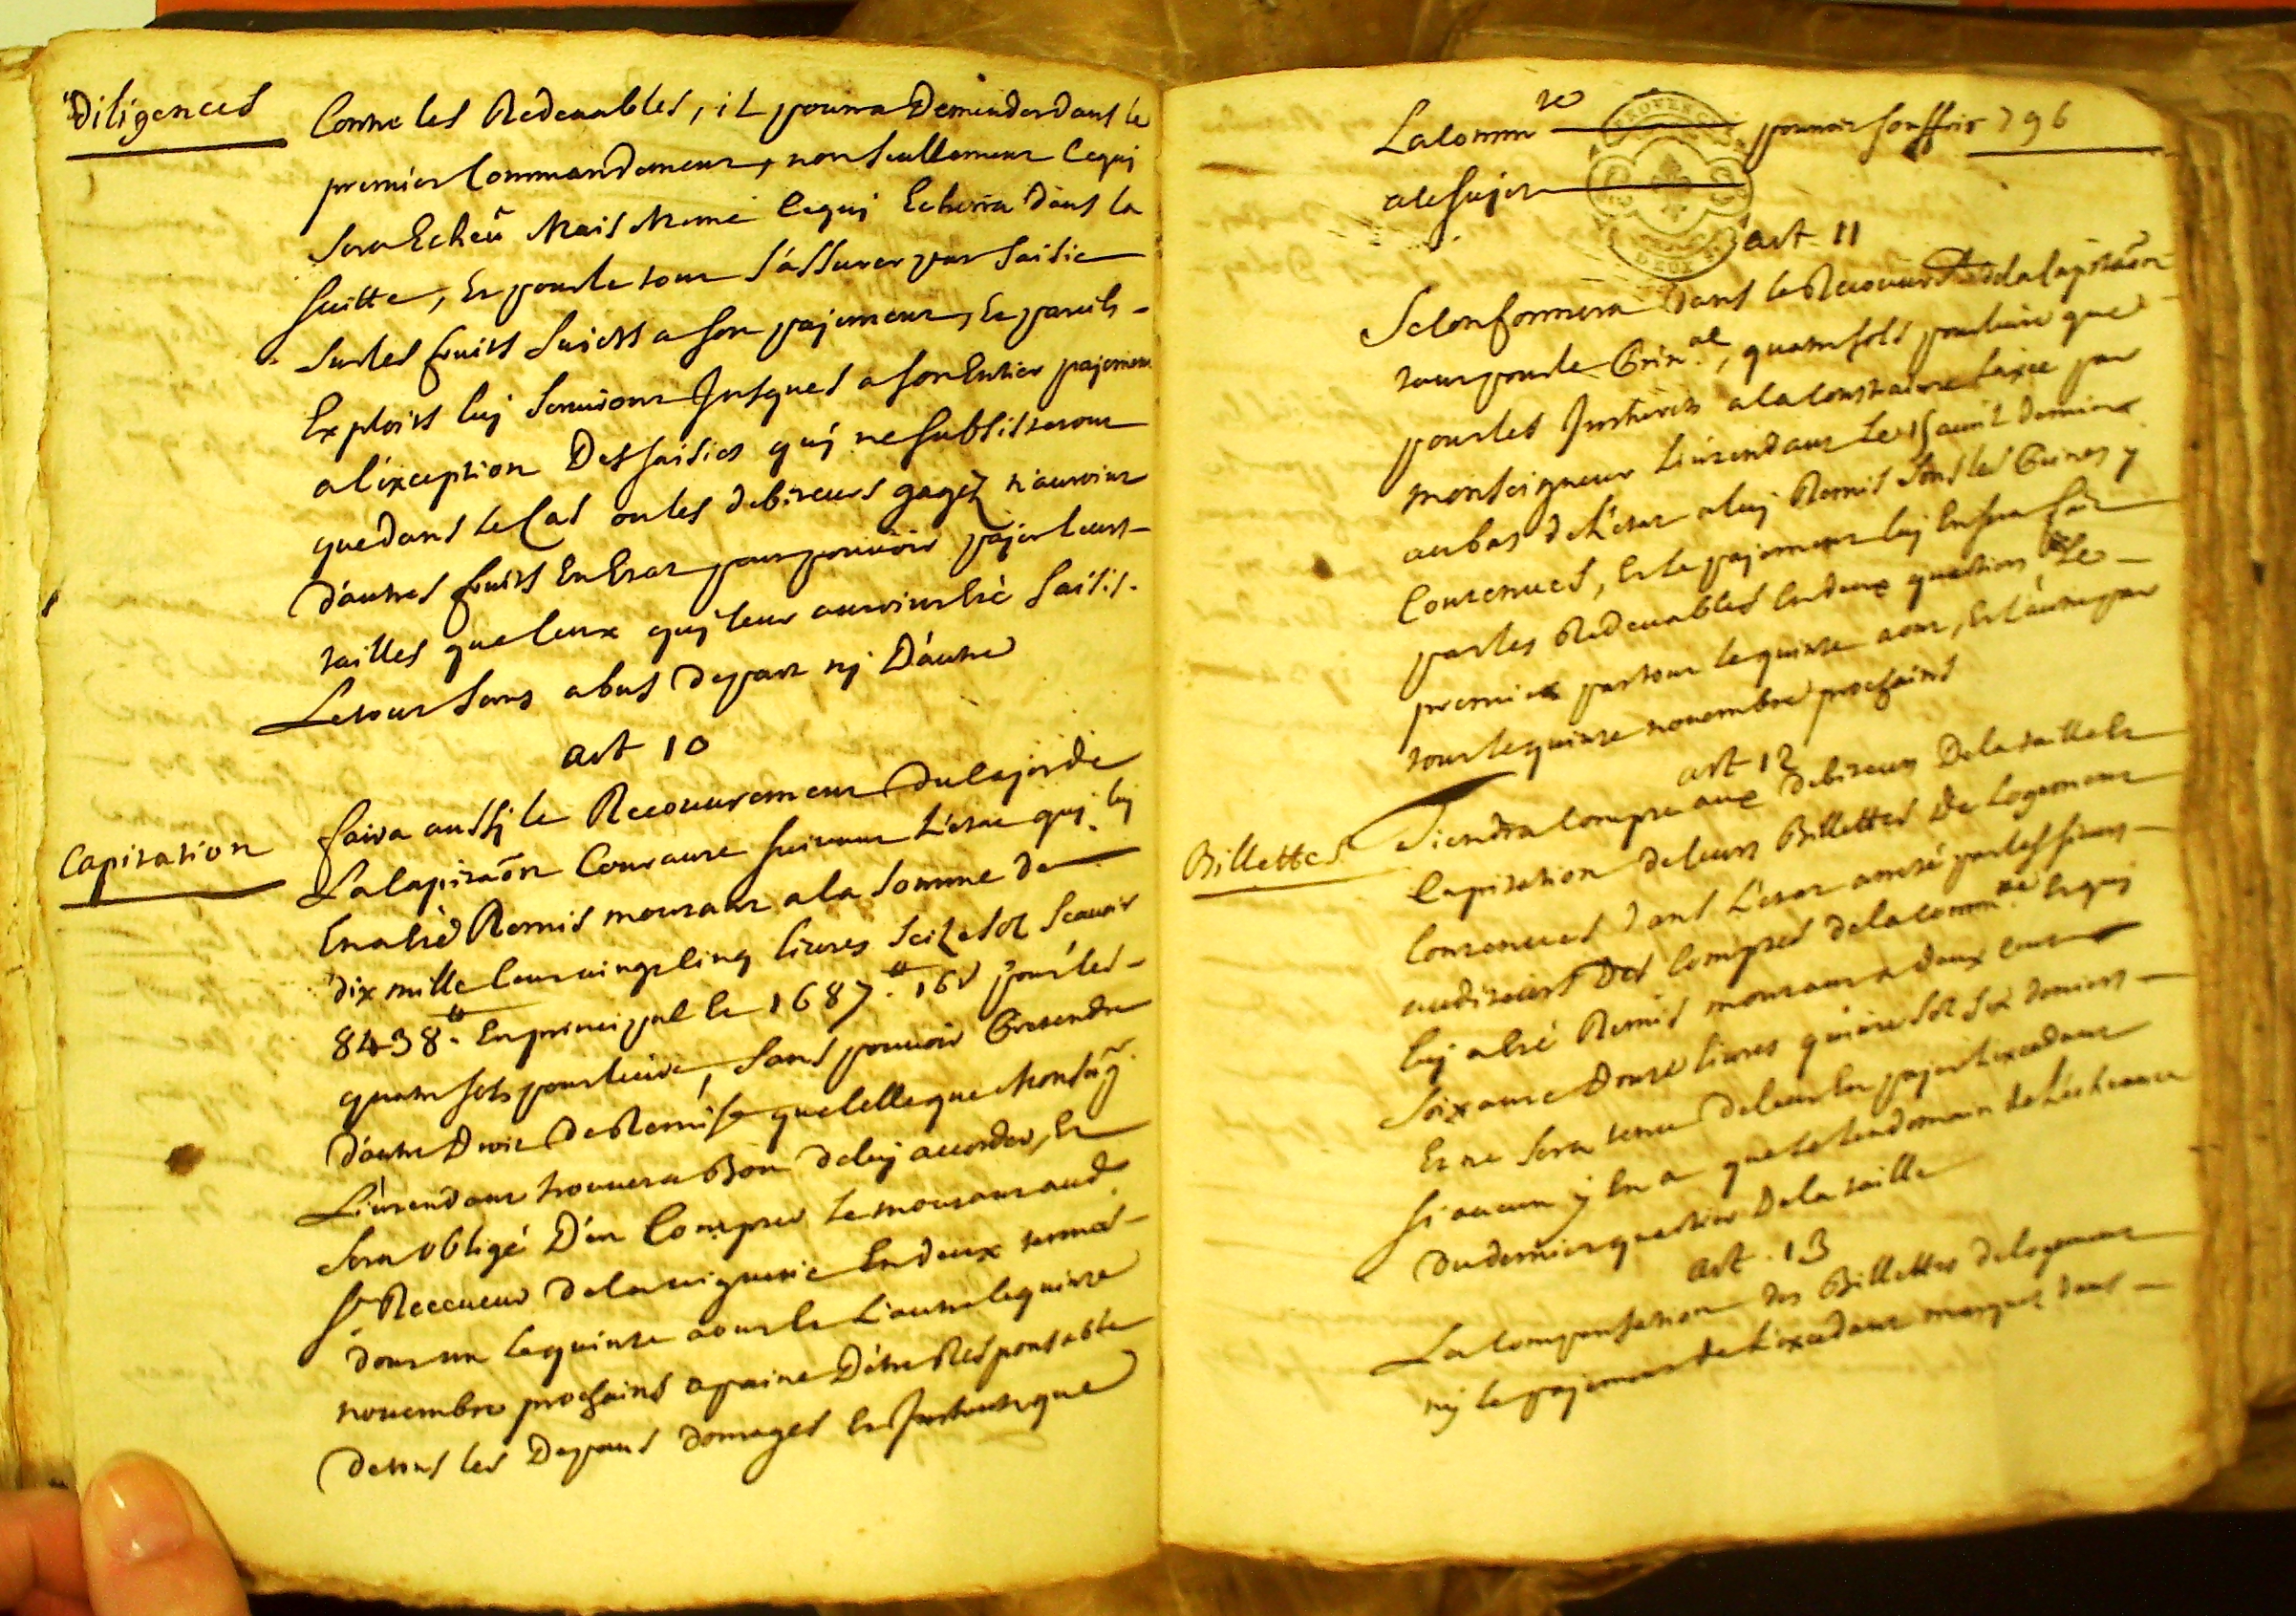 Diligences
Contre les Redeuables, il pourra Demender dans le
premier Commandement, non seullement Cequj
sera Echeû Mais Meme Cequj Echerra dans la
suitte, Et pour le tout s'assurer par saisie
sur les fruits suiets a son pajement, Et pareils
Exploits luj seruiront Jusques a son Entier pajement
a l'exception Des saisies quj ne subsisteront
que dans le Cas ou les debiteurs gagéz n'auroint
d'autres fruits En Etat pour pouuoir pajer leurs
tailles que Ceux quj leur auroint Eté saisis.
Le tout sans abus de part nj D'autre
art 10
Capitation
faira aussj le Recouurement du Cajer de
La Capitaôn Courante suiuant L'etat quj luj
En a Eté Remis montant a la somme de
dix mille Cent vingt Cinq liures seize sol scauoir
8438.tt En principal Et 1687.tt 16s pour les
quatre sols pour liure, sans pouuoir Pretendre
d'autre Droit De Remise que Celle que Monsgr
L'intendant trouuera Bon de luj accorder, Et
sera obligé D'en Compter le montant aud
sr Receueur de la viguerie En deux termes
dont un le quinze aout Et L'autre le quinze
nouembre prochains a paine D'etre Responsable
de tous les Depans domages Et Jnterets que
La Commte pouuoir souffrir 796
a le sujet
PROVENCE
DEUX S
art 11
Se Conformera dans le Recouurt de la Capitaôn
tant pour le Prinal, quatre sols pour liure que
pour les Jnterets a la Contrainte laxée par
monseigneur L'intendant le 15 auril dernier
au bas de L'etat a luj Remis sous les Peines y
Contenues, Et le pajement luj En sera fait
par les Redeuables En deux quartiers Le
premier par tout le quinze aout, Et l'autre par
tout le quinze nouembre prochains
art 12
Billettes
Tiendra Compte aux debiteurs De la taille Et
Capitation de leurs Billettes De Logement
Contenues dans L'etat arreté par les sieurs
auditeurs Des Comptes de la Commté Et quj
luj a Eté Remis montant a deux Cent
soixante Douze liures quinze sol six deniers
Et ne sera tenu de leur En pajer L'excedant
si aucun y En a que le lendemain de L'echeance
du dernier quartier De la taille
art. 13
La Compensation des Billettes de logement
nj le pajement de L'excedant marqué dans